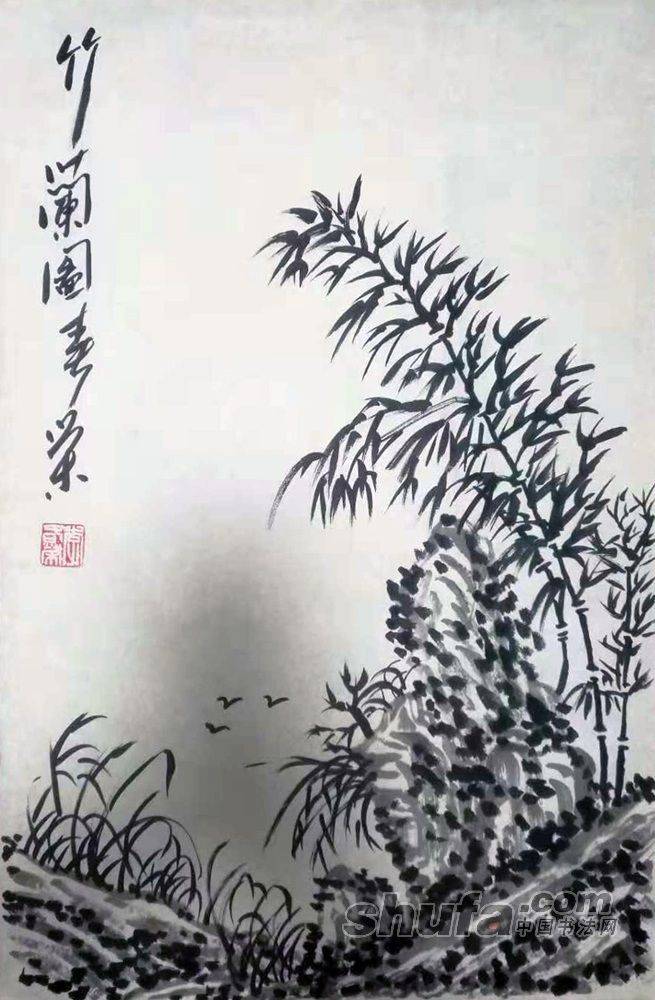 竹蘭圖春荣
shufa.com
中国书法网